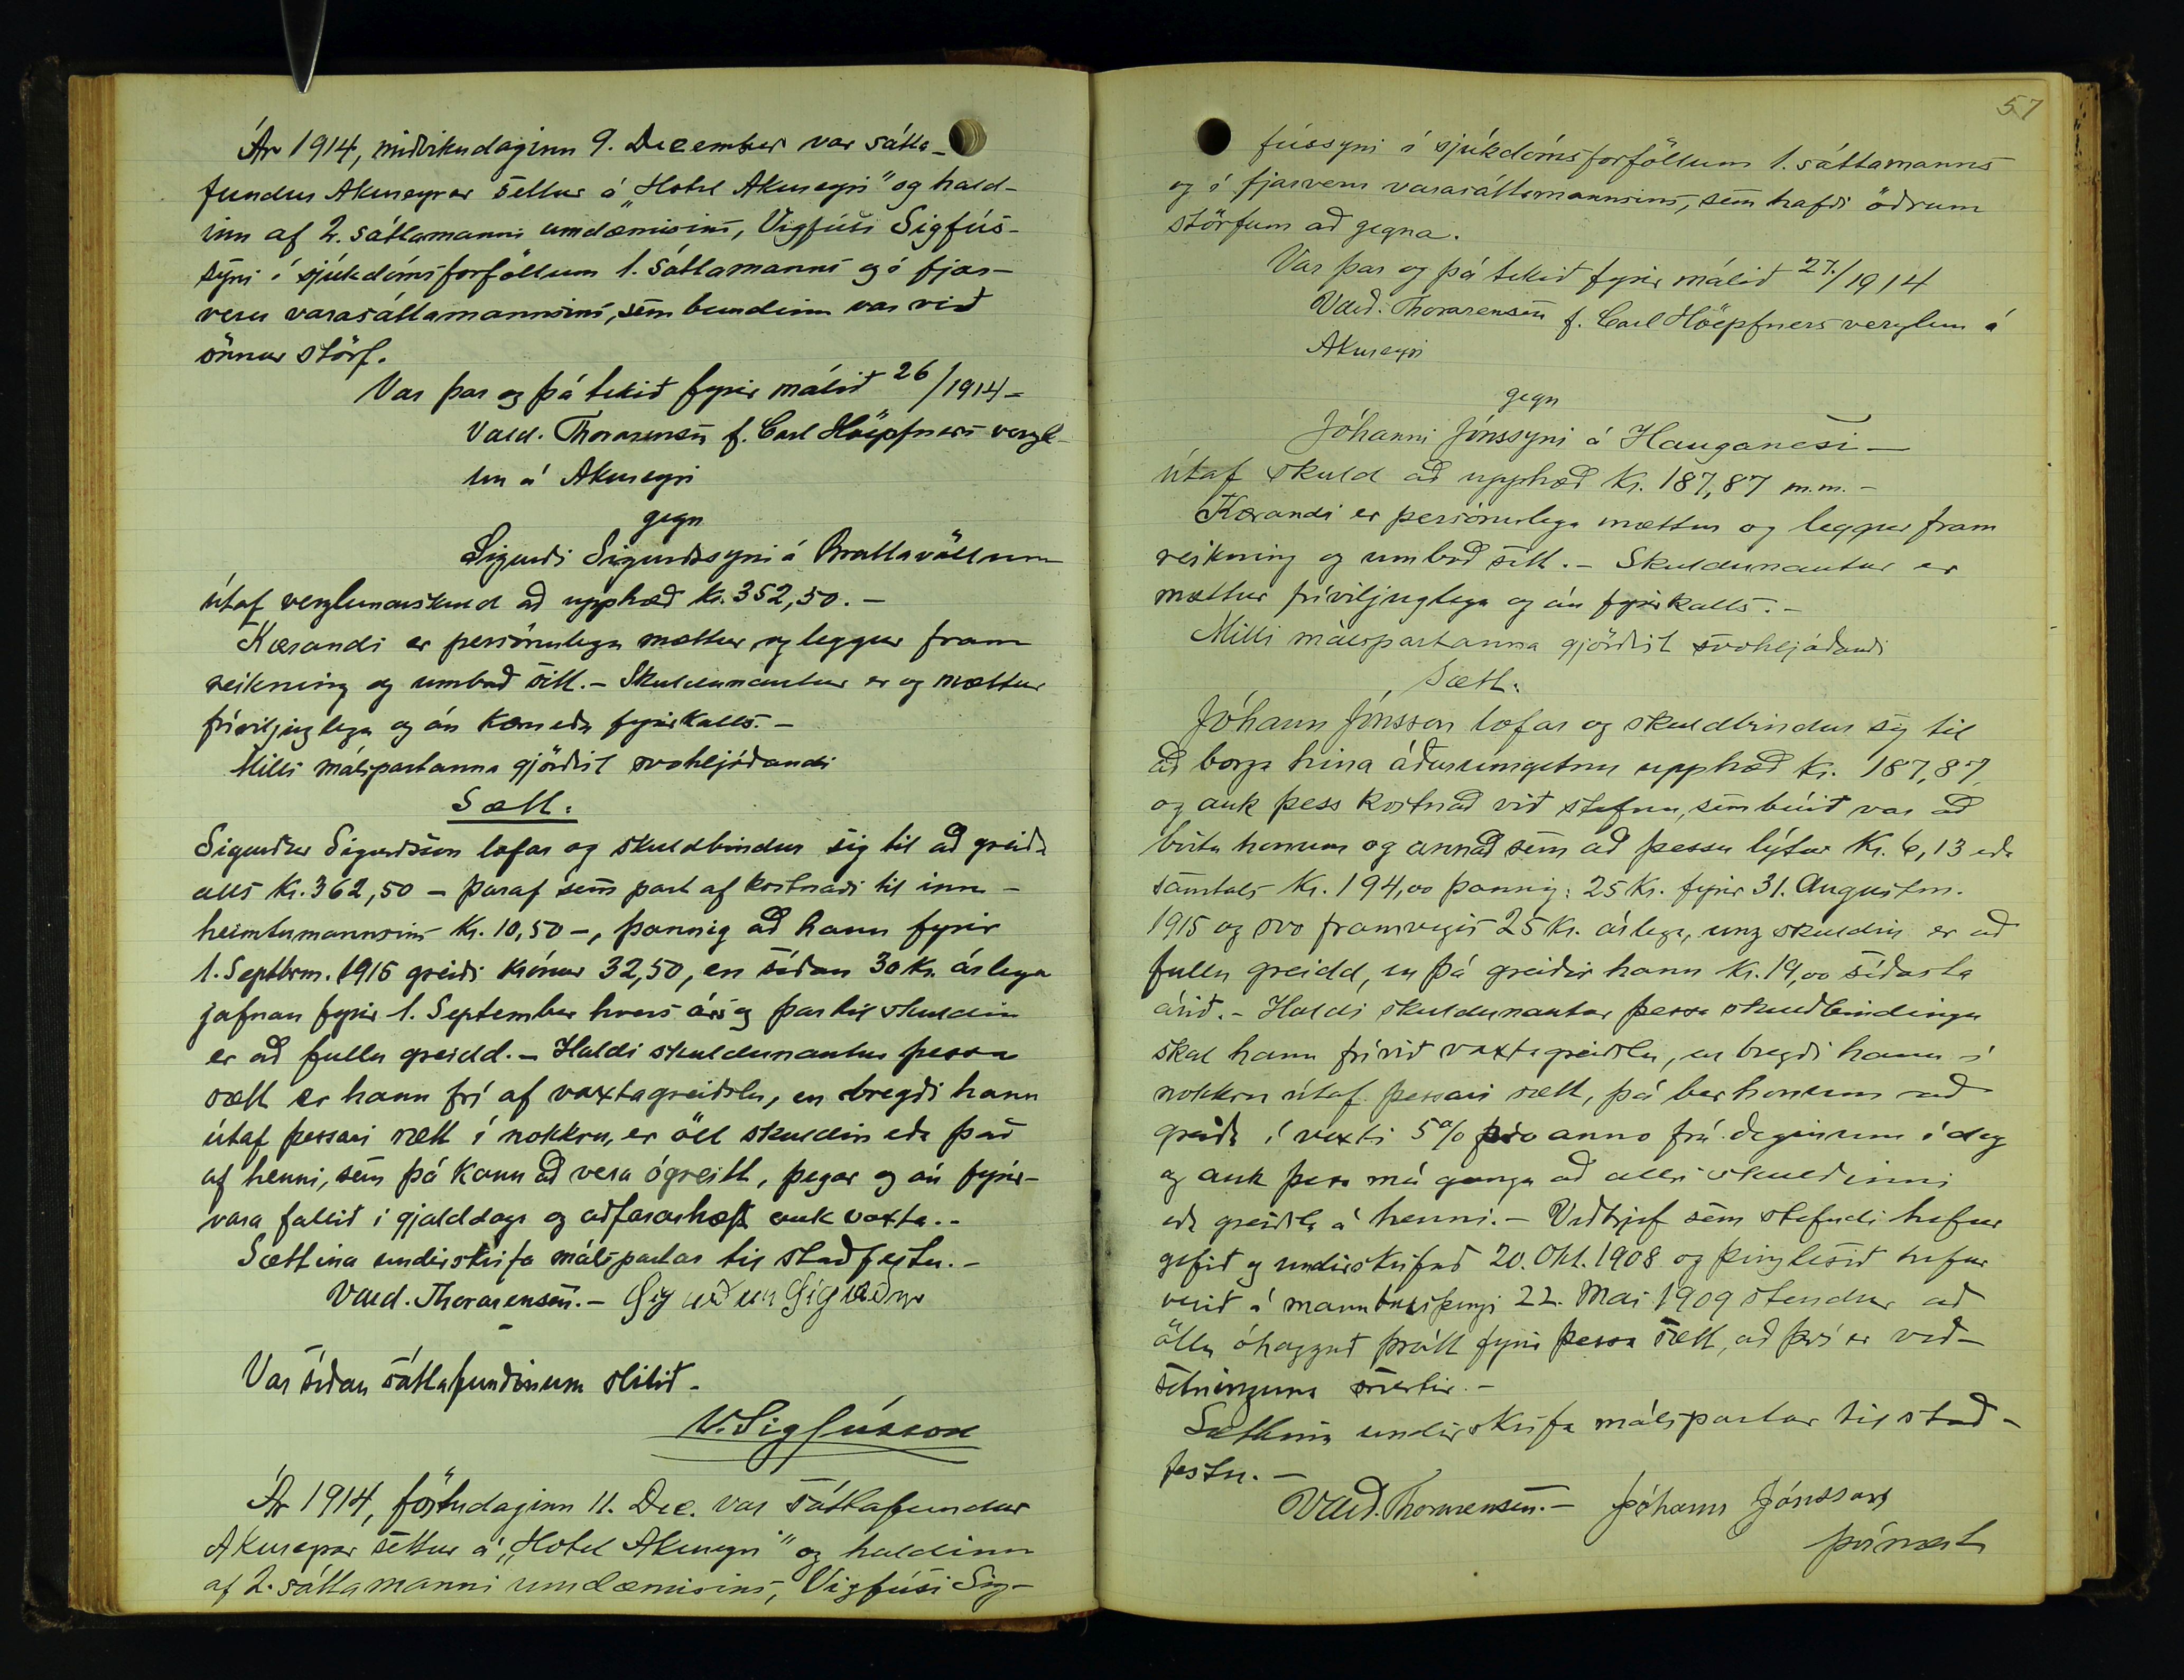 Ár 1914, miðvikudaginn 9. December var sátta-
fundur Akureyrar settur á „Hotel Akureyri" og hald-
inn af 2. sáttamanni umdæmisins, Vigfúsi Sigfús-
syni í sjúkdómsforföllum 1. sáttamanns og í fjar-
veru varasáttamannsins, sem bundinn var við
önnur störf.
Var þar og þá tekið fyrir málið 26/1914 -
Vald. Thorarensen f. Carl Höepfners verzl-
un á Akureyri
gegn
Sigurði Sigurðssyni á Brattavöllum
útaf verzlunarskuld að upphæð kr. 352,50. -
Kærandi er persónulega mættur og leggur fram
reikning og umboð sitt. - Skuldunautur er og mættur
fríviljuglega og án kæru eða fyrirkalls. -
Milli málspartanna gjörðist svohljóðandi
Sætt:
Sigurður Sigurðsson lofar og skuldbindur sig til að greiða
alls kr. 362,50 - þaraf sem part af kostnaði til inn-
heimtumannsins kr. 10,50 -, þannig að hann fyrir
1. Septbrm. 1915 greiði krónur 32,50, en síðan 30 kr. árlega
jafnan fyrir 1. September hvers árs og þar til skuldin
er að fullu greidd. - Haldi skuldunautur þessa
sætt er hann frí af vaxtagreiðslu, en bregði hann
útaf þessari sætt í nokkru, er öll skuldin eða það
af henni, sem þá kann að vera ógreitt, þegar og án fyrir-
vara fallið í gjalddaga og aðfararhæft auk vaxta. -
Sættina undirskrifa málspartar til staðfestu. -
Vald. Thorarensen. - Sigurður Sigurðsson
Var síðan sáttafundinum slitið -
V. Sigfússon
Ár 1914, föstudaginn 11. Dec. var sáttafundur
Akureyrar settur á „Hotel Akureyri" og haldinn
af 2. sáttamanni umdæmisins, Vigfúsi Sig-
57
fússyni í sjúkdómsforföllum 1. sáttamanns
og í fjarveru varasáttamannsins, sem hafði öðrum
störfum að gegna.
Var þar og þá tekið fyrir málið 27./1914
Vald. Thorarensen f. Carl Höepfners verzlun á
Akureyri
gegn
Jóhanni Jónssyni á Hauganesi -
útaf skuld að upphæð kr. 187,87 m.m. -
Kærandi er persónulega mættur og leggur fram
reikning og umboð sitt. - Skuldunautur er
mættur fríviljuglega og án fyrirkalls. -
Milli málspartanna gjörðist svohljóðandi
Sætt:
Jóhann Jónsson lofar og skuldbindur sig til
að borga hina áðurumgetnu upphæð kr. 187,87
og auk þess kostnað við stefnu, sem búið var að
birta honum og annað sem að þessu lýtur kr. 6,13 eða
samtals kr. 194,00 þannig: 25 kr. fyrir 31. Augustm.
1915 og svo framvegis 25 kr. árlega, unz skuldin er að
fullu greidd, en þá greiðir hann kr. 19,00 síðasta
árið. - Haldi skuldunautur þessa skuldbindingu
skal hann frí við vaxtagreiðslu, en bregði hann í
nokkru útaf þessari sætt, þá ber honum að
greiða í vexti 5% pro anno frá deginum í dag
og auk þess má ganga að allri skuldinni
eða greiðslu á henni. - Veðbrjef sem stefndi hefur
gefið og undirskrifað 20. Okt. 1908 og þinglesið hefur
verið á manntalsþingi 22. Mai 1909 stendur að
öllu óhaggað þrátt fyrir þessa sætt, að því er veð-
setninguna snertir. -
Sættina undirskrifa málspartar til stað-
festu. -
Vald. Thorarensen. - Jóhann Jónsson
þvínæst